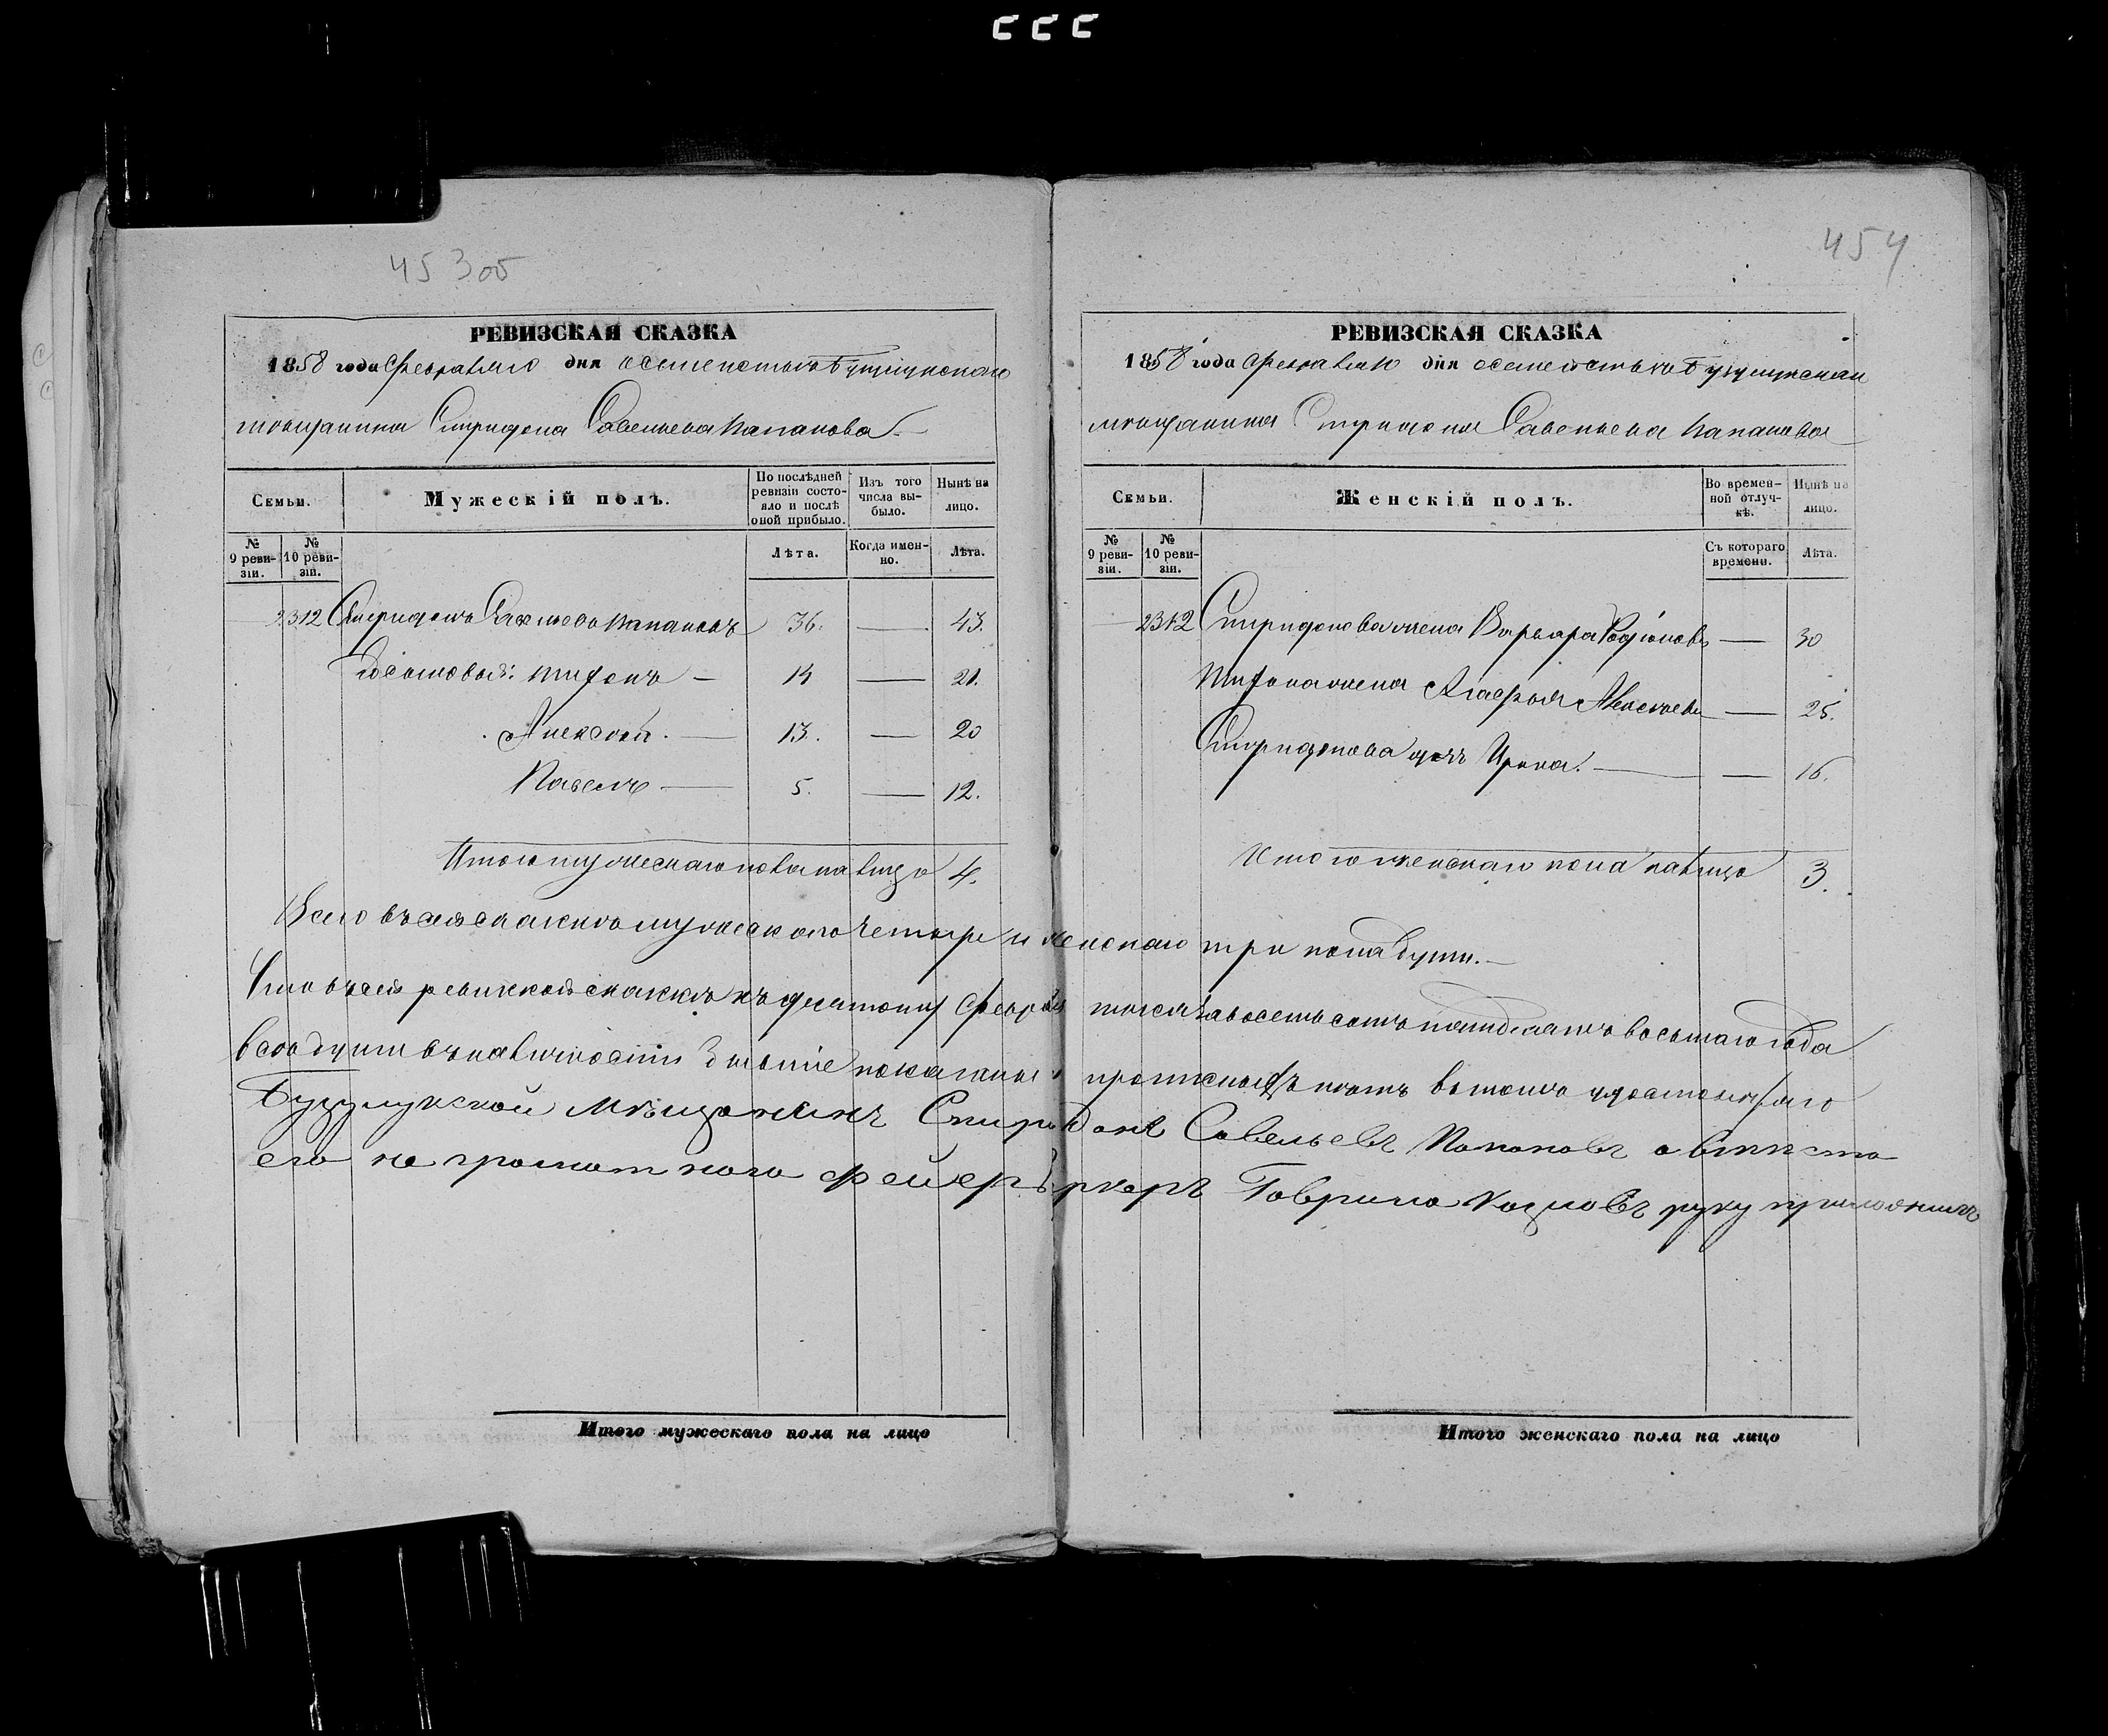 453об
454
РЕВИЗСКАЯ СКАЗКА
1858 года Февраля 10 дня о семействе Бузулукскаго
мещанина Спиридона Савельева Капанова
Семьи. Мужескій полъ. По послѣдней ревизіи состояло и послѣ оной прибыло. Изъ того числа выбыло. Нынѣ на лицо.
№ 9 ревизіи. № 10 ревизіи. Лѣта. Когда именно. Лѣта.
2312 Спиридонъ Савельевъ Капановъ 36. — 43.
Тихонъ — 14 — 21.
Алексей. — 13. — 20
Павелъ — 5. — 12.
Итого мужескаго пола на лицо 4.
РЕВИЗСКАЯ СКАЗКА
1858 года Февраля 10 дня о семействе Бузулукскаго
мещанина Спиридона Савельева Капанова
Семьи. Женскій полъ. Во временной отлучкѣ. Нынѣ на лицо.
№ 9 ревизіи. № 10 ревизіи. Съ котораго времени. Лѣта.
2312 Спиридонова жена Варвара Родіонова — 30
Тихона жена Агафья Алексеева — 25.
Спиридонова дочь Ирина. — — 16.
Итого женскаго пола на лицо 3.
Всего въ сей скаске мужескаго четыре и женскаго три пола души. —
Что въ сей ревизкой скаске къ десятому Февраля тысяча восемь сотъ пятьдесятъ восьмаго года
все души въ наличности бывшіе показаны и прописныхъ нетъ въ томъ удостоверяю
Бузулукской Мѣщанинъ Спиридонъ Савельевъ Капановъ а вместо
его не граматнаго фейерверкеръ Гаврила Козловъ руку приложилъ
Итого мужескаго пола на лицо
Итого женскаго пола на лицо